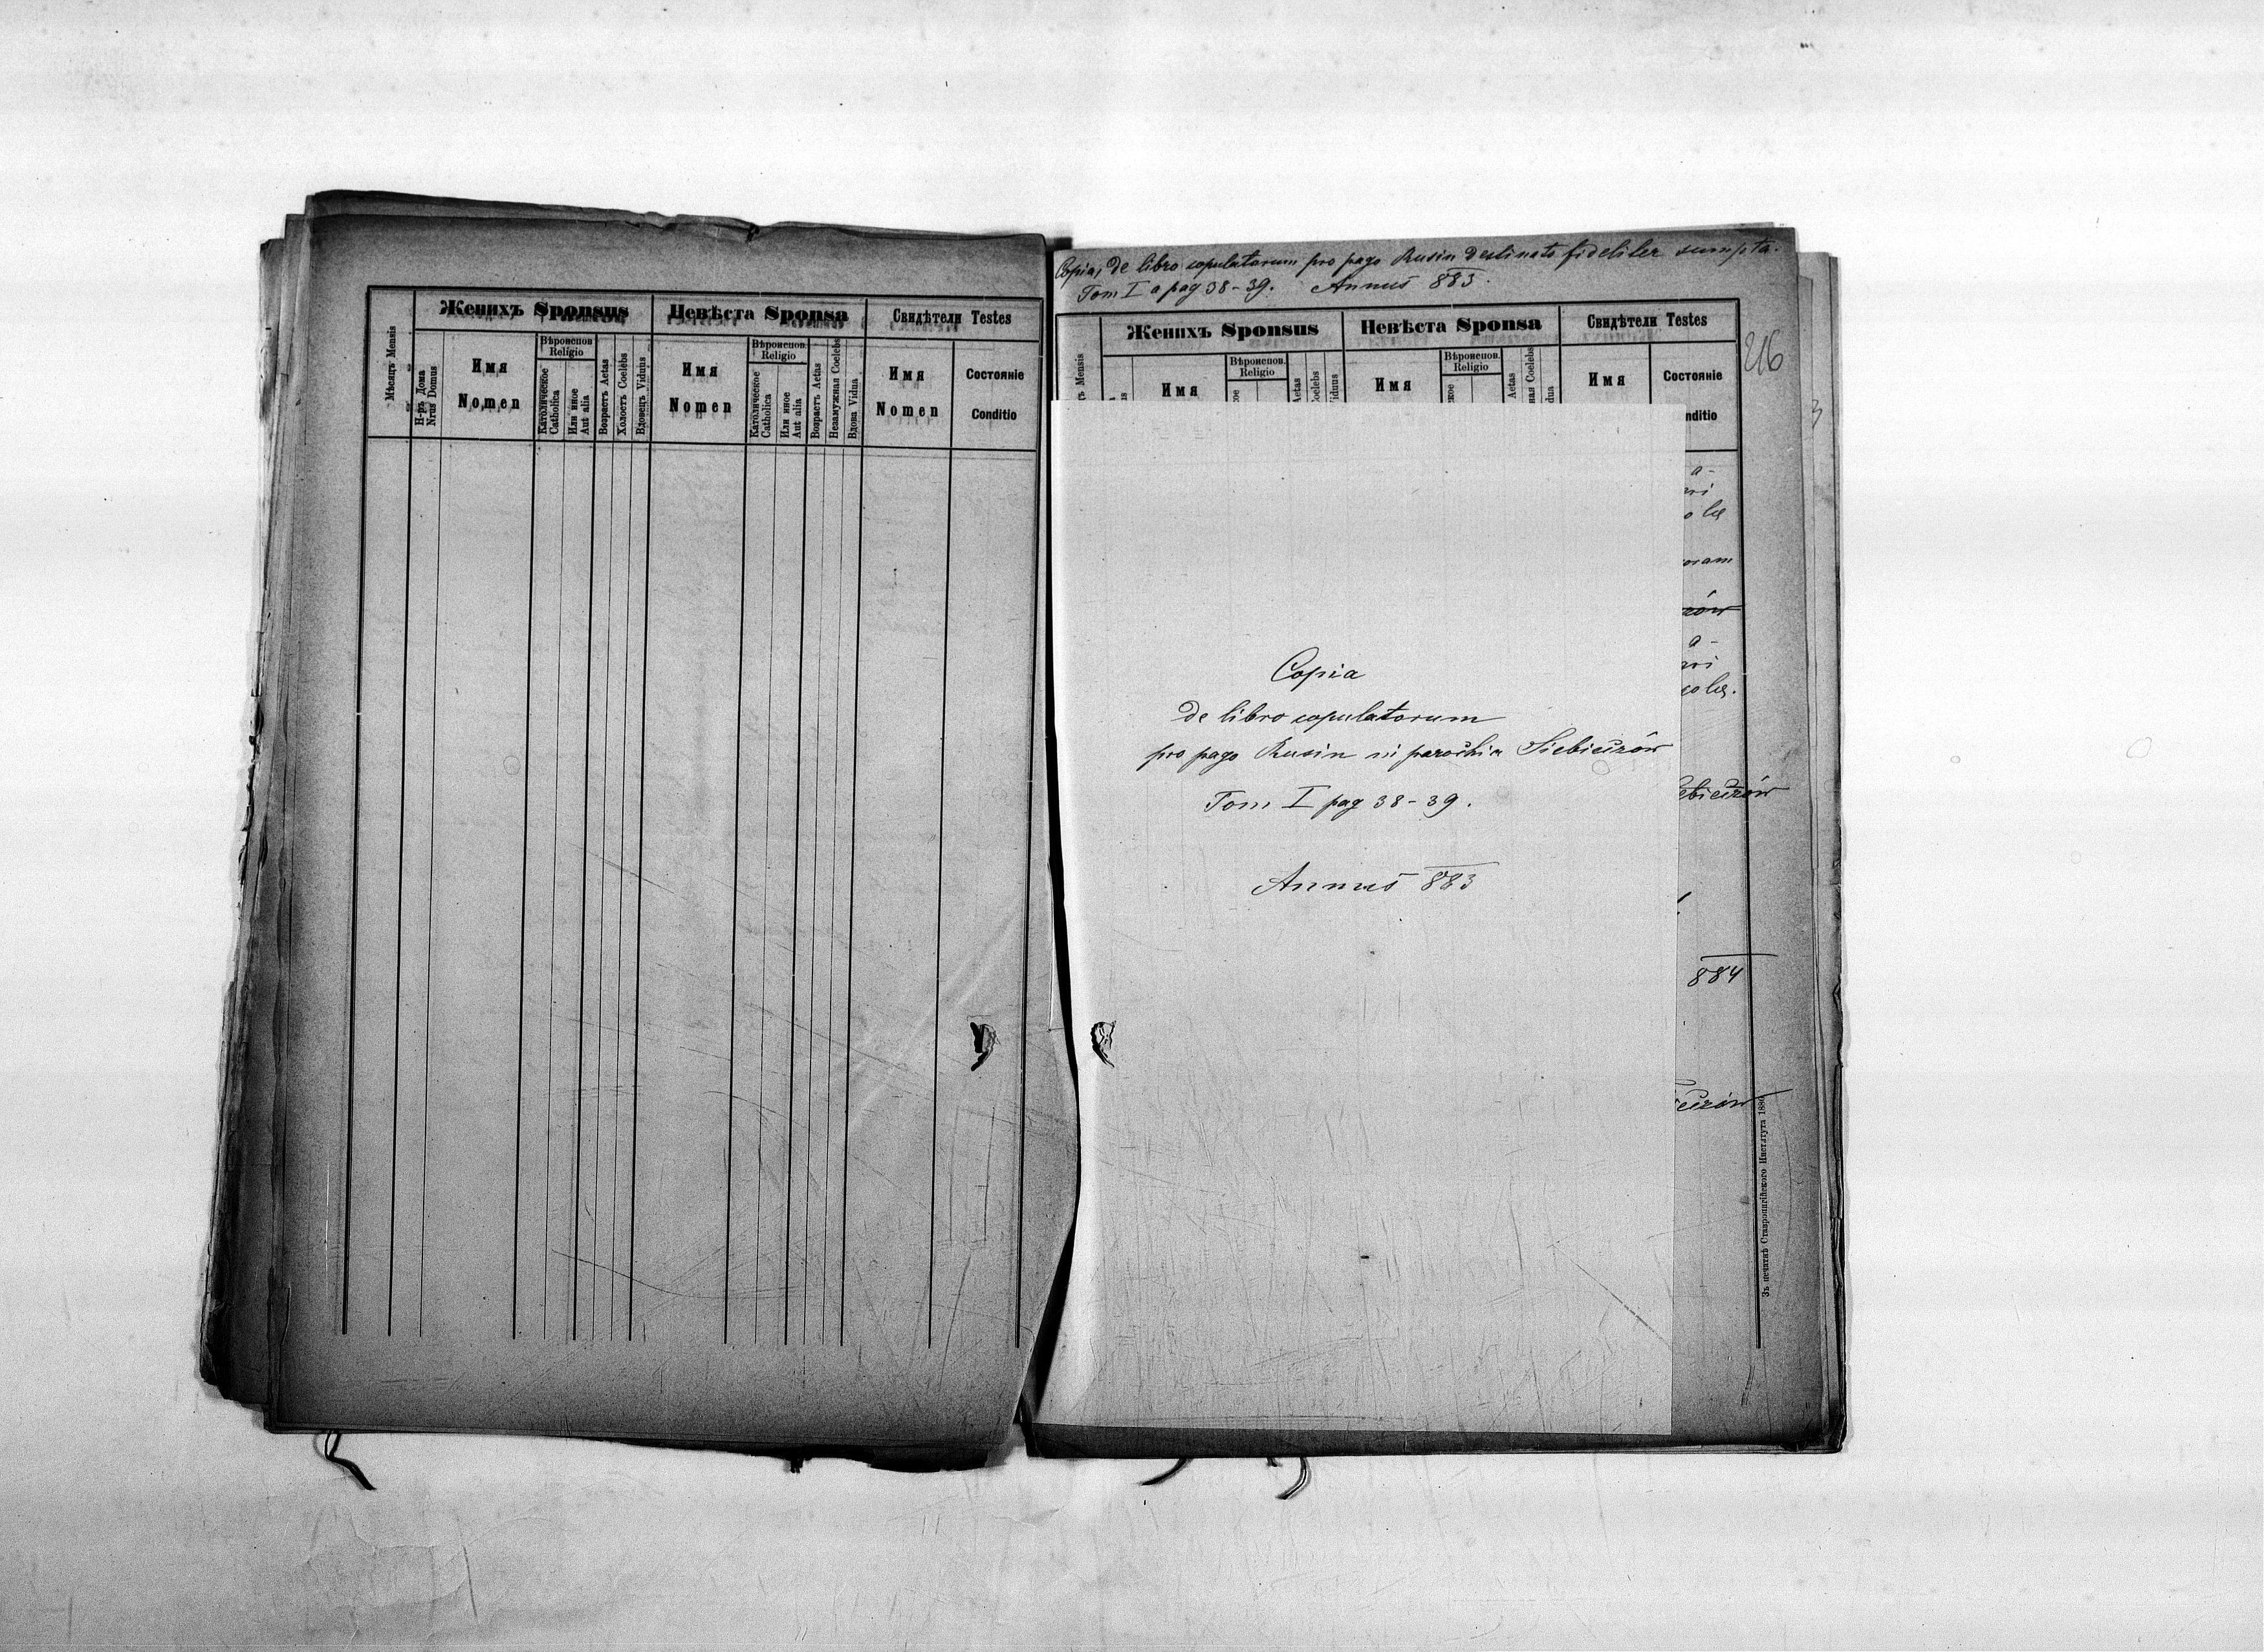 Женихъ Sponsus Невѣста Sponsa Свидѣтели Testes
Мѣсяцъ Mensis
Н-ръ Дома
Nrus Domus
Имя
Nomen
Вѣроиспов.
Religio
Католическое
Catholica
Или иное
Aut alia
Возрастъ Aetas
Холостъ Coelebs
Вдовецъ Viduus
Имя
Nomen
Вѣроиспов.
Religio
Католическое
Catholica
Или иное
Aut alia
Возрастъ Aetas
Незамужная Coelebs
Вдова Vidua
Имя
Nomen
Состояніе
Conditio
Copia, de libro copulatorum pro pago Rusin destinato fideliter sumpta.
Tom I a pag 38-39. Annus 883.
216
Женихъ Sponsus Невѣста Sponsa Свидѣтели Testes
Mensis
Имя
Вѣроиспов.
Religio
Aetas
Имя
Вѣроиспов.
Religio
Aetas
Coelebs
Имя
Состояніе
nditio
3
Copia
de libro copulatorum
pro pago Rusin in parochia Siebieczów
Tom I pag 38-39.
Annus 883
884
Зъ печатнѣ Ставропигійского Института 188